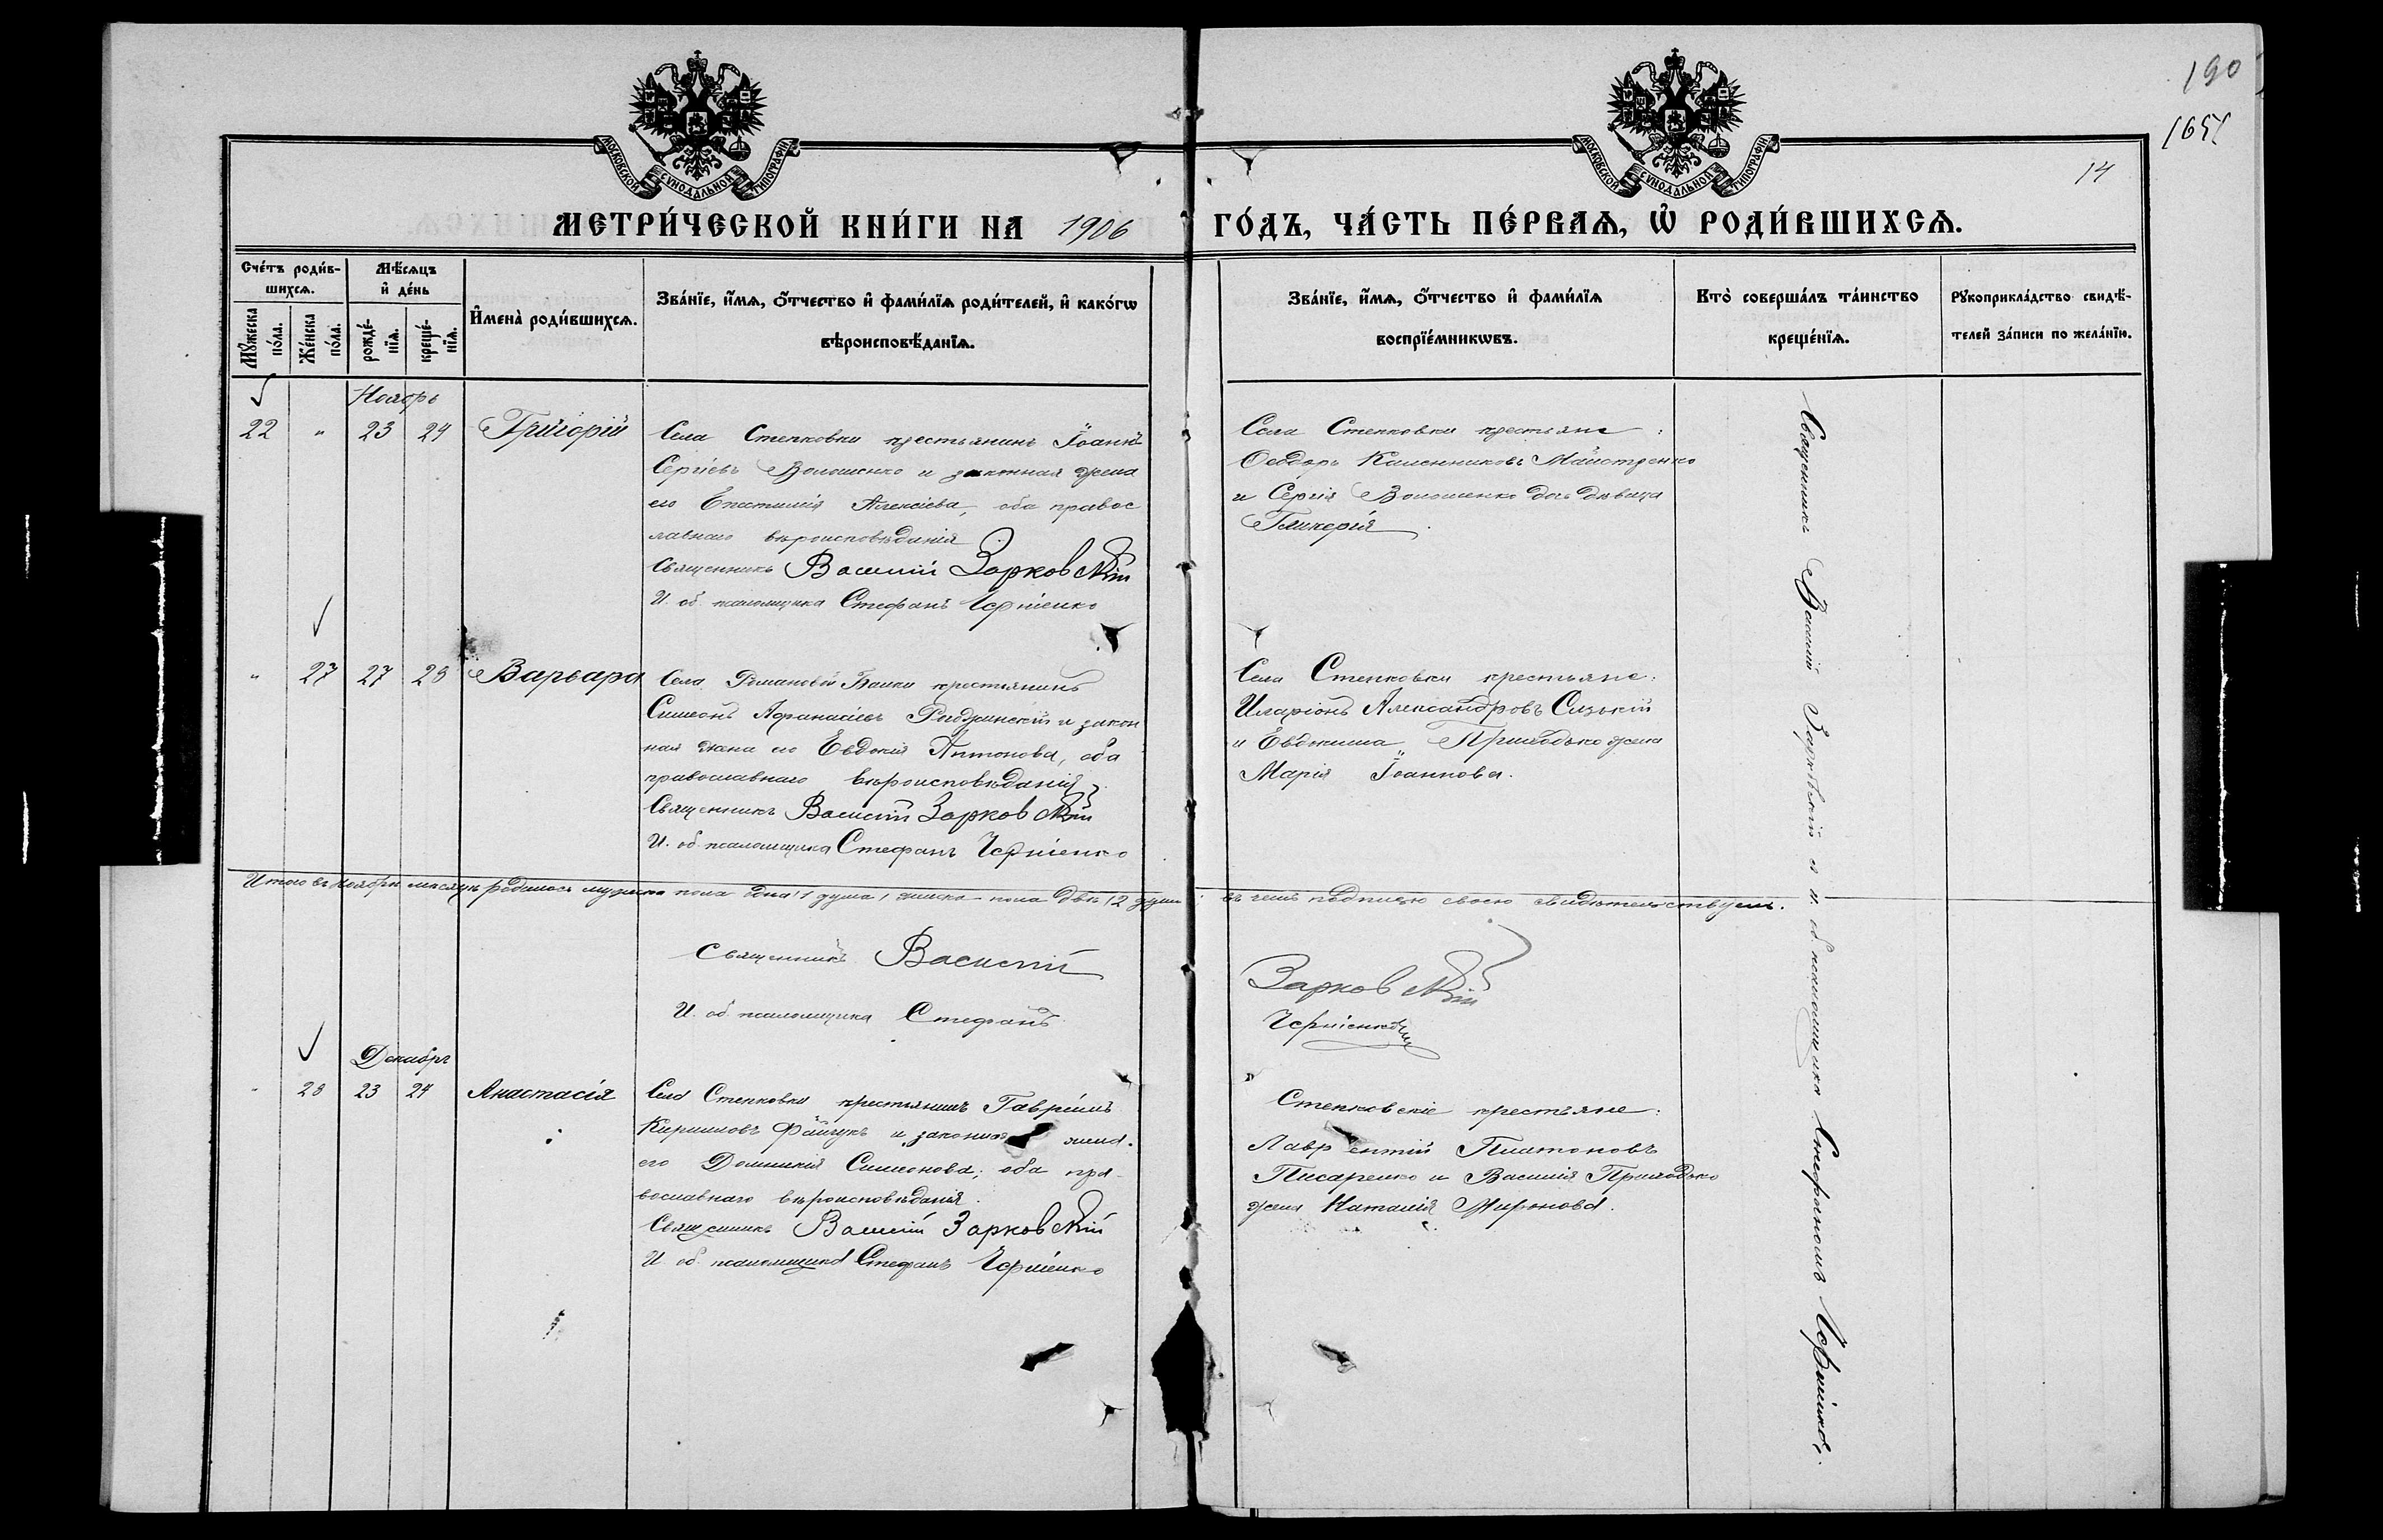 190
1651
14
МОСКОВСКОЙ СѴНОДАЛЬНОЙ ТИПОГРАФІИ
МОСКОВСКОЙ СѴНОДАЛЬНОЙ ТИПОГРАФІИ
МЕТРИ́ЧЕСКОЙ КНИ́ГИ НА 1906 ГО́ДЪ, ЧА́СТЬ ПЕ́РВАѦ, Ѡ҆ РОДИ́ВШИХСѦ.
Сче́тъ роди́в-
шихсѧ.
Мѣ́сѧцъ
и҆ де́нь
Мꙋ́жеска по́ла.
Же́нска по́ла.
рожде́-нїѧ.
креще́-нїѧ.
И҆мена̀ роди́вшихсѧ.
Зва́нїе, и҆́мѧ, ѻ҆́тчество и҆ фами́лїѧ роди́телей, и҆ како́гѡ
вѣроисповѣ́данїѧ.
Зва́нїе, и҆́мѧ, ѻ҆́тчество и҆ фами́лїѧ
воспрїе́мникѡвъ.
Кто̀ соверша́лъ та́инство
креще́нїѧ.
Рꙋкоприкла́дство свидѣ́-
телей за́писи по жела́нїю.
Ноябрь
22 " 23 24 Григорій
Села Степковки крестьянинъ Іоаннъ
Сергіевъ Волошенко и законная жена
его Епистимія Алексіева, оба правос
лавнаго вѣроисповѣданія
Священникъ Василій Зарковскій
И. об. псаломщика Стефанъ Черніенко
Села Степковки крестьяне:
Ѳеодоръ Каленниковъ Майстренко
и Сергія Волошенко дочь дѣвица
Гликерія.
" 27 27 28 Варвара
Села Романовой Балки крестьянинъ
Симеонъ Афанасіевъ и закон
ная жена его Евдокія Антонова, оба
православнаго вѣроисповѣданія
Священникъ Василій Зарковскій
И. об. псаломщика Стефанъ Черніенко
Села Степковки крестьяне:
Иларіонъ Александровъ
и Евдокима Приходько жена
Марія Іоаннова.
Священникъ Василій Зарковскій съ и. об. псаломщика Стефаномъ Черніенко.
Итого въ Ноябрѣ мѣсяцѣ родилось мужска пола одна /1 душа/ женска пола двѣ /2 души/ въ чемъ подписью своею свидѣтельствуемъ.
Священникъ Василій Зарковскій
И. об. псаломщика Стефанъ Черніенко
Декабрь
" 28 23 24 Анастасія
Села Степковки крестьянинъ Гавріилъ
Кирилловъ и законная жена
его Домникія Симеонова; оба пра-
вославнаго вѣроисповѣданія.
Священникъ Василій Зарковскій
И. об. псаломщика Стефанъ Черніенко
Степковскіе крестьяне:
Лаврентій Платоновъ
Писаренко и Василія Приходько
жена Наталія Миронова.